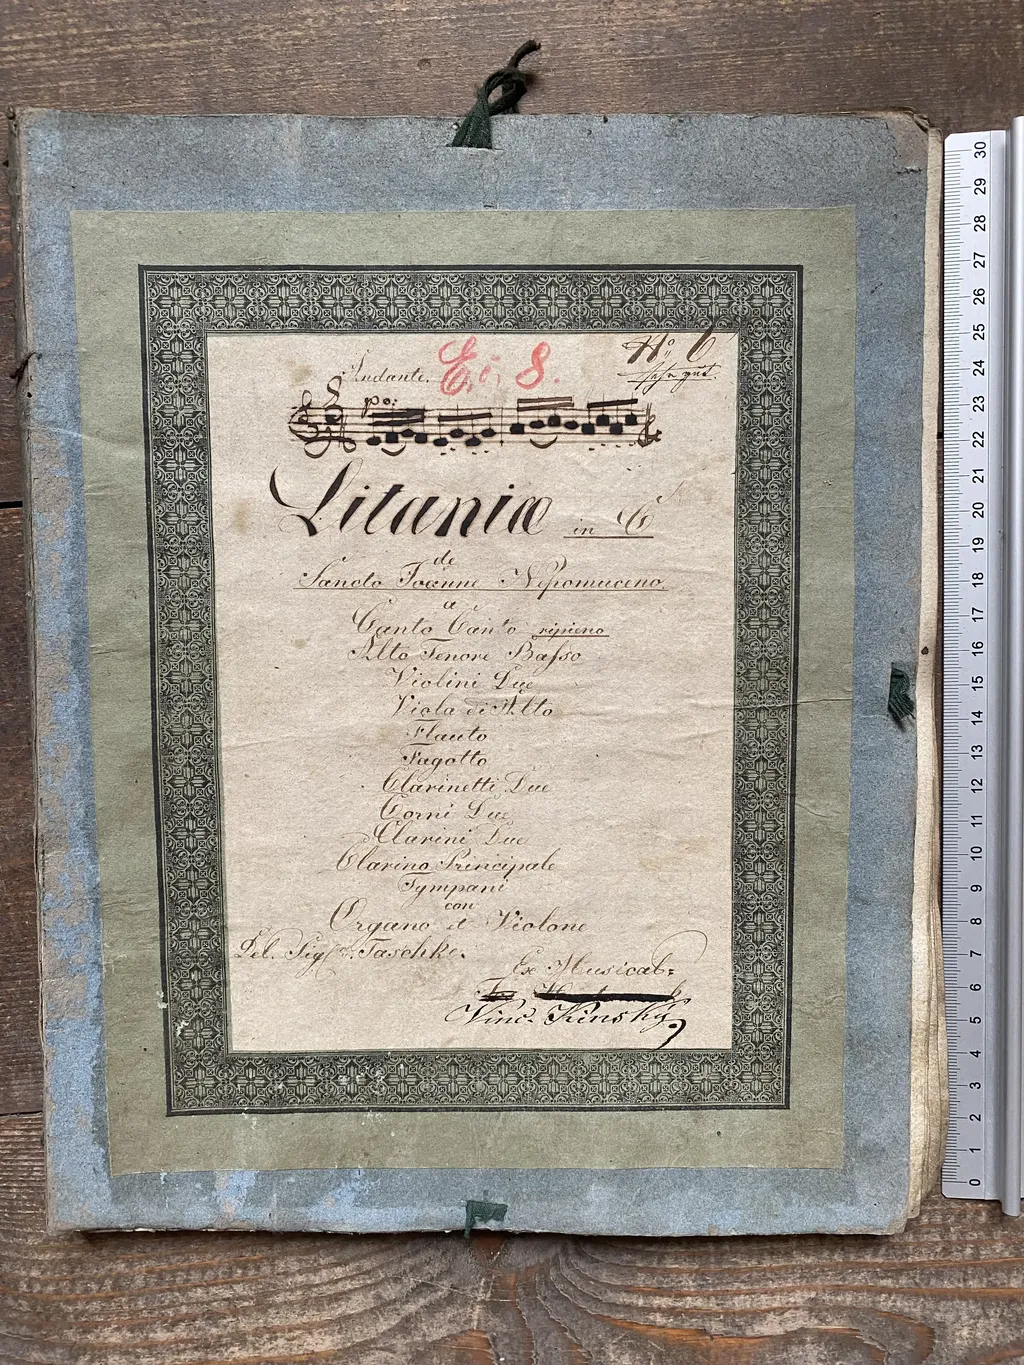 No. 6
sehr gut.
E. i. 8.
Andante.
po:
Litaniæ in C
de
Sancto Joanne Nepomuceno.
a
Canto Canto ripieno
Alto Tenore Basso
Violini Due
Viola di Alto
Flauto
Fagotto
Clarinetti Due
Corni Due
Clarini Due
Clarino Principale
Tympani
con
Organo et Violone
Del. Sigl. Taschke.
Ex Musicab:
Vinc. Kinský
30
29
28
27
26
25
24
23
22
21
20
19
18
17
16
15
14
13
12
11
10
9
8
7
6
5
4
3
2
1
0